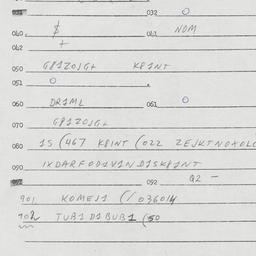 031 032 0
040 $ 041 NOM
042 +
050 GPIZOJG+ KPINT
051 0
060 DRIML 061 0
070 GPIZOJG+
080 15 (467 KPINT (022 ZEJKTNOXOLC
090 IXDARFODIVINDISKPINT
092 Q2 -
901 KOMEJI (/ 036014
902 TUBIDIBUBI (50